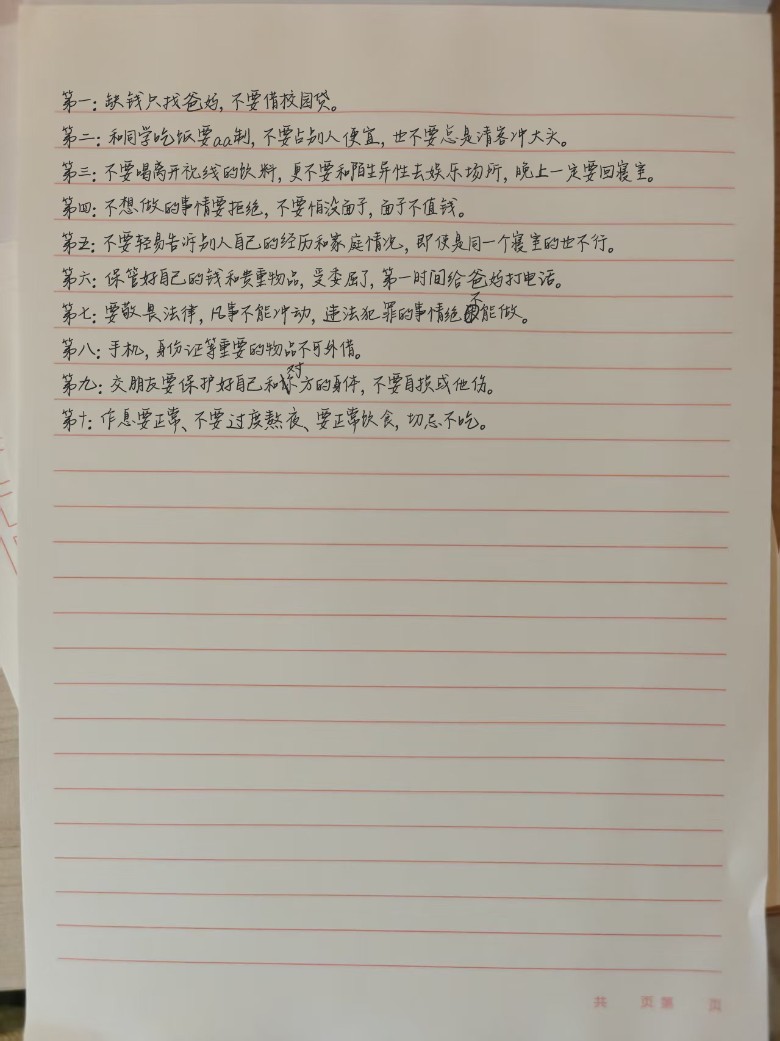 第一：缺钱只找爸妈，不要借校园贷。
第二：和同学吃饭要aa制，不要占别人便宜，也不要总是请客冲大头。
第三：不要喝离开视线的饮料，更不要和陌生异性去娱乐场所，晚上一定要回寝室。
第四：不想做的事情要拒绝，不要怕没面子，面子不值钱。
第五：不要轻易告诉别人自己的经历和家庭情况，即便是同一个寝室的也不行。
第六：保管好自己的钱和贵重物品，受委屈了，第一时间给爸妈打电话。
第七：要敬畏法律，凡事不能冲动，违法犯罪的事情绝不能做。
第八：手机，身份证等重要的物品不可外借。
第九：交朋友要保护好自己和对方的身体，不要自损或他伤。
第十：作息要正常、不要过度熬夜、要正常饮食，切忌不吃。
共 页 第 页